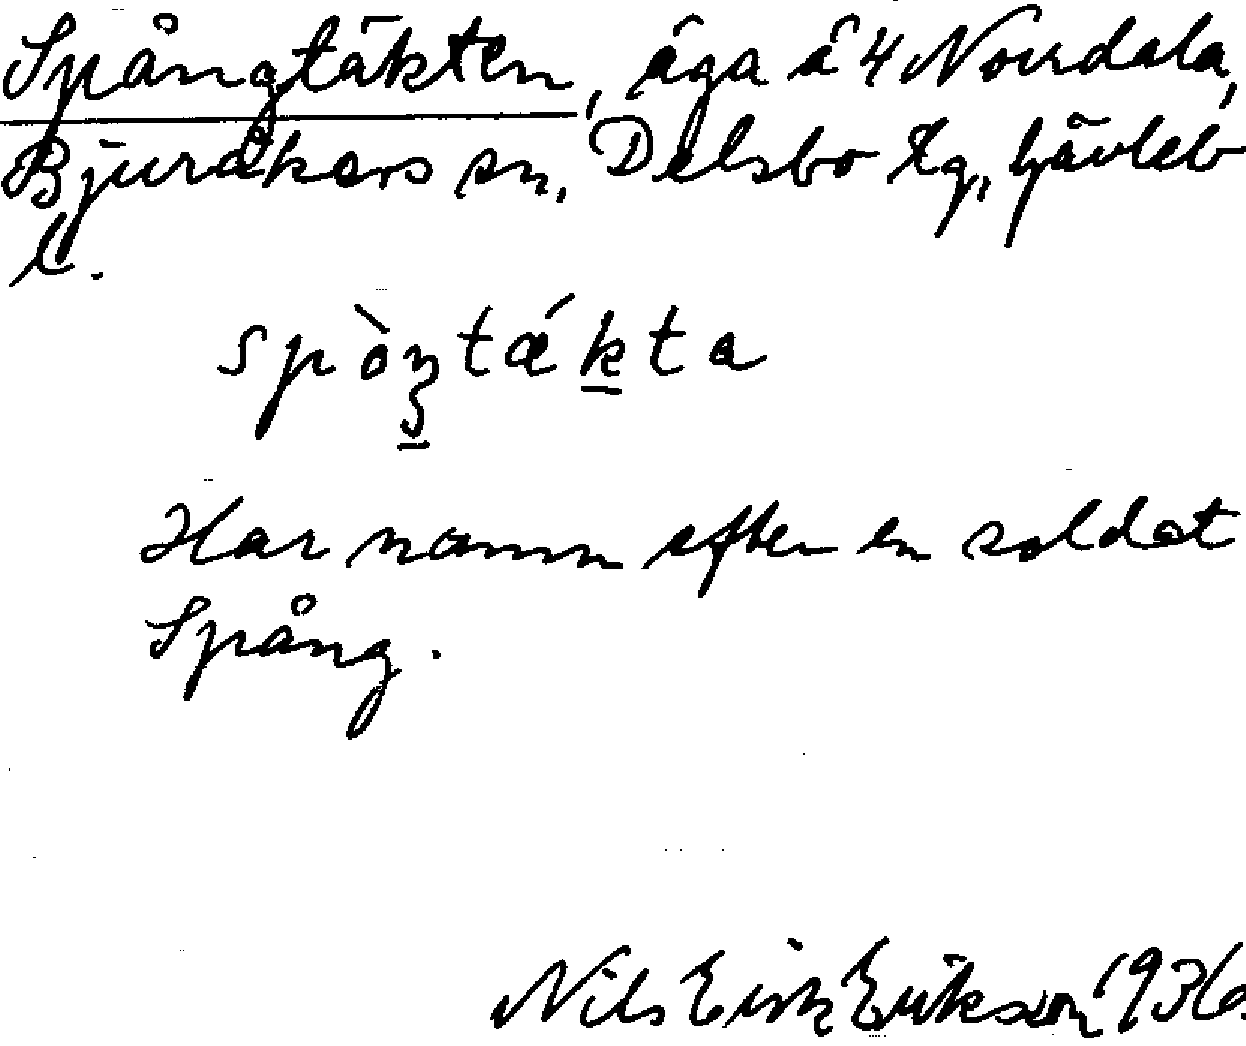 Spångtäkten, äga å 4 Norrdala,
Bjuråkers sn, Delsbo tg, Gävleb
l.
spòŋtǽkta
Har namn efter en soldat
Spång.
Nils Erik Eriksson 1936.